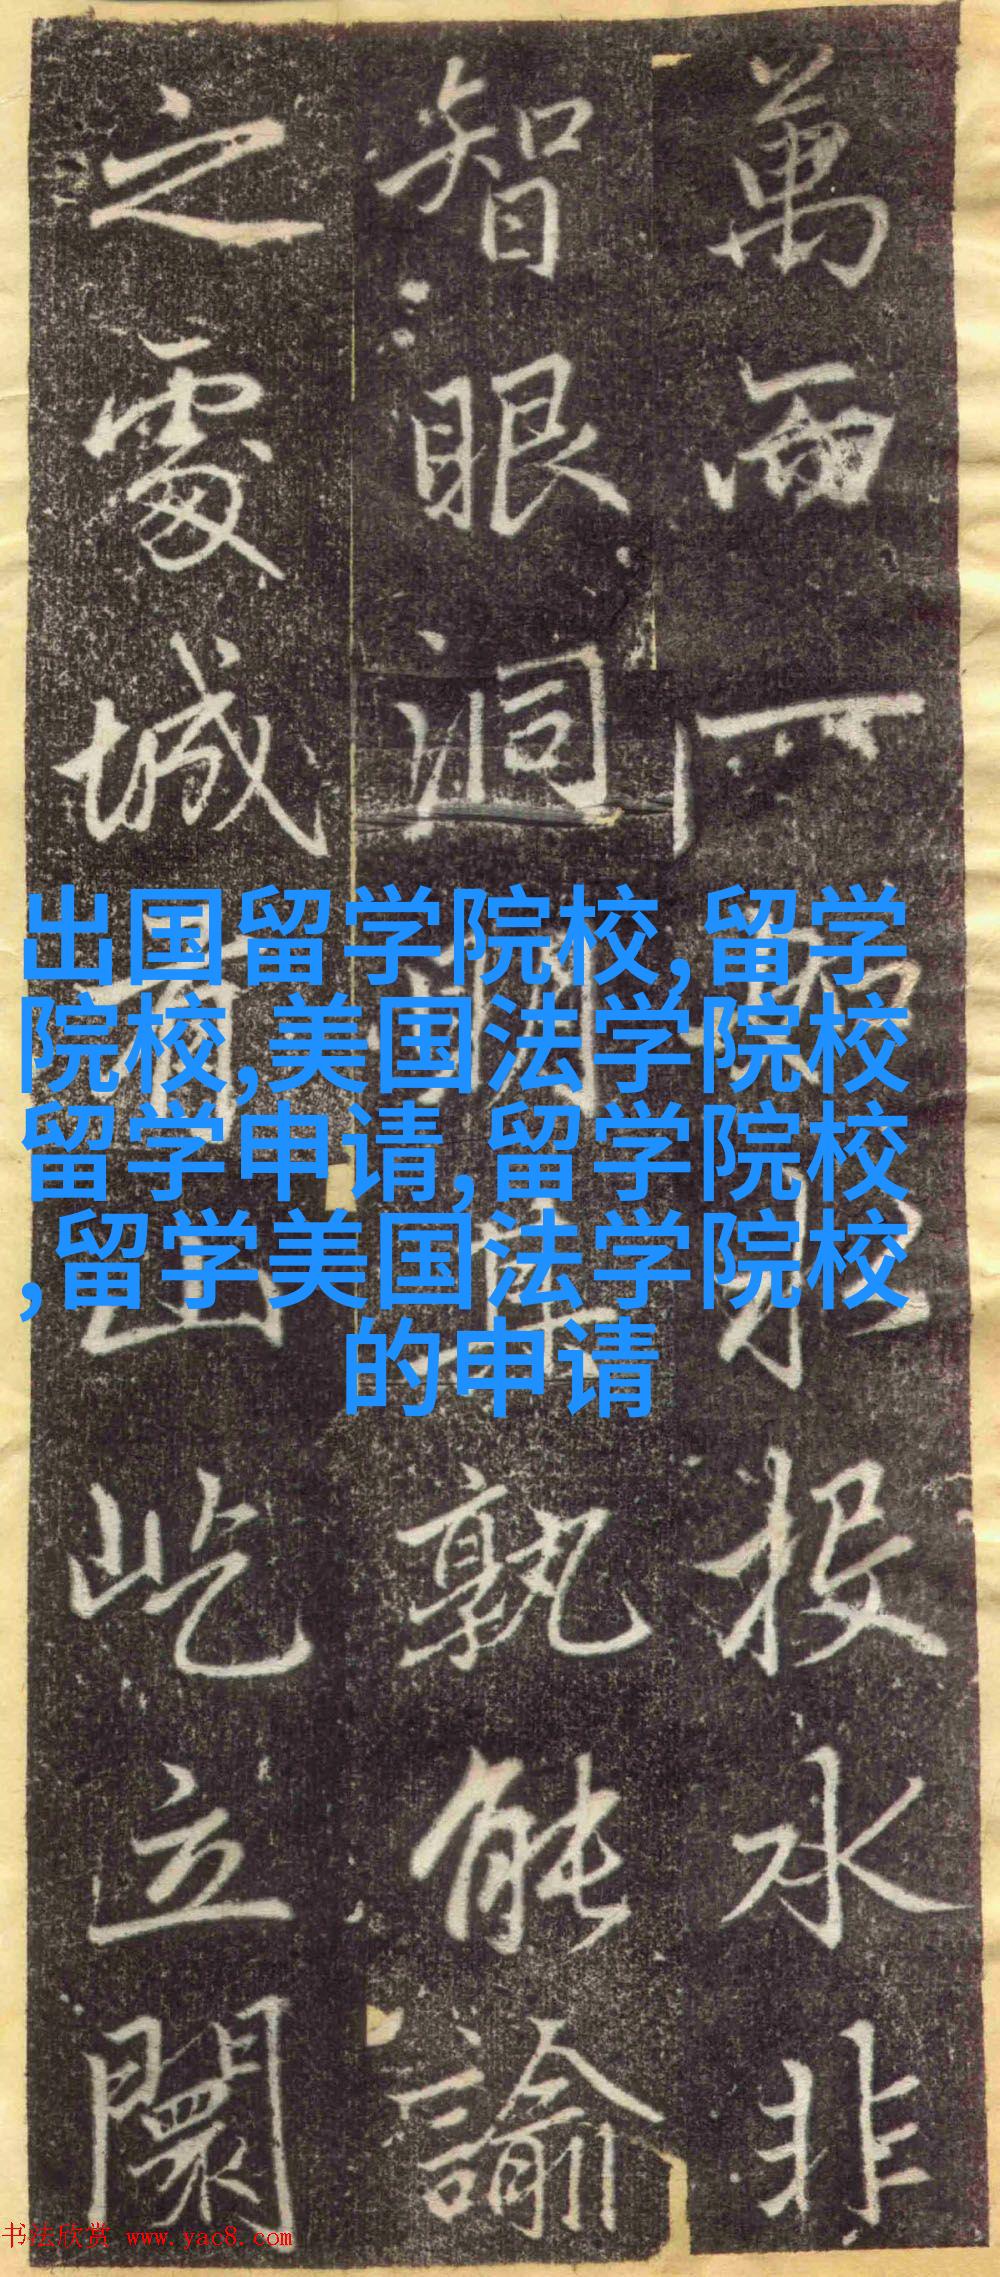 萬而一投水非
智眼洞孰能諭
之城百山屹立闤
出国留学院校,留学
院校,美国法学院校
留学申请,留学院校
,留学美国法学院校
的申请
书法欣赏 www.yac8.com